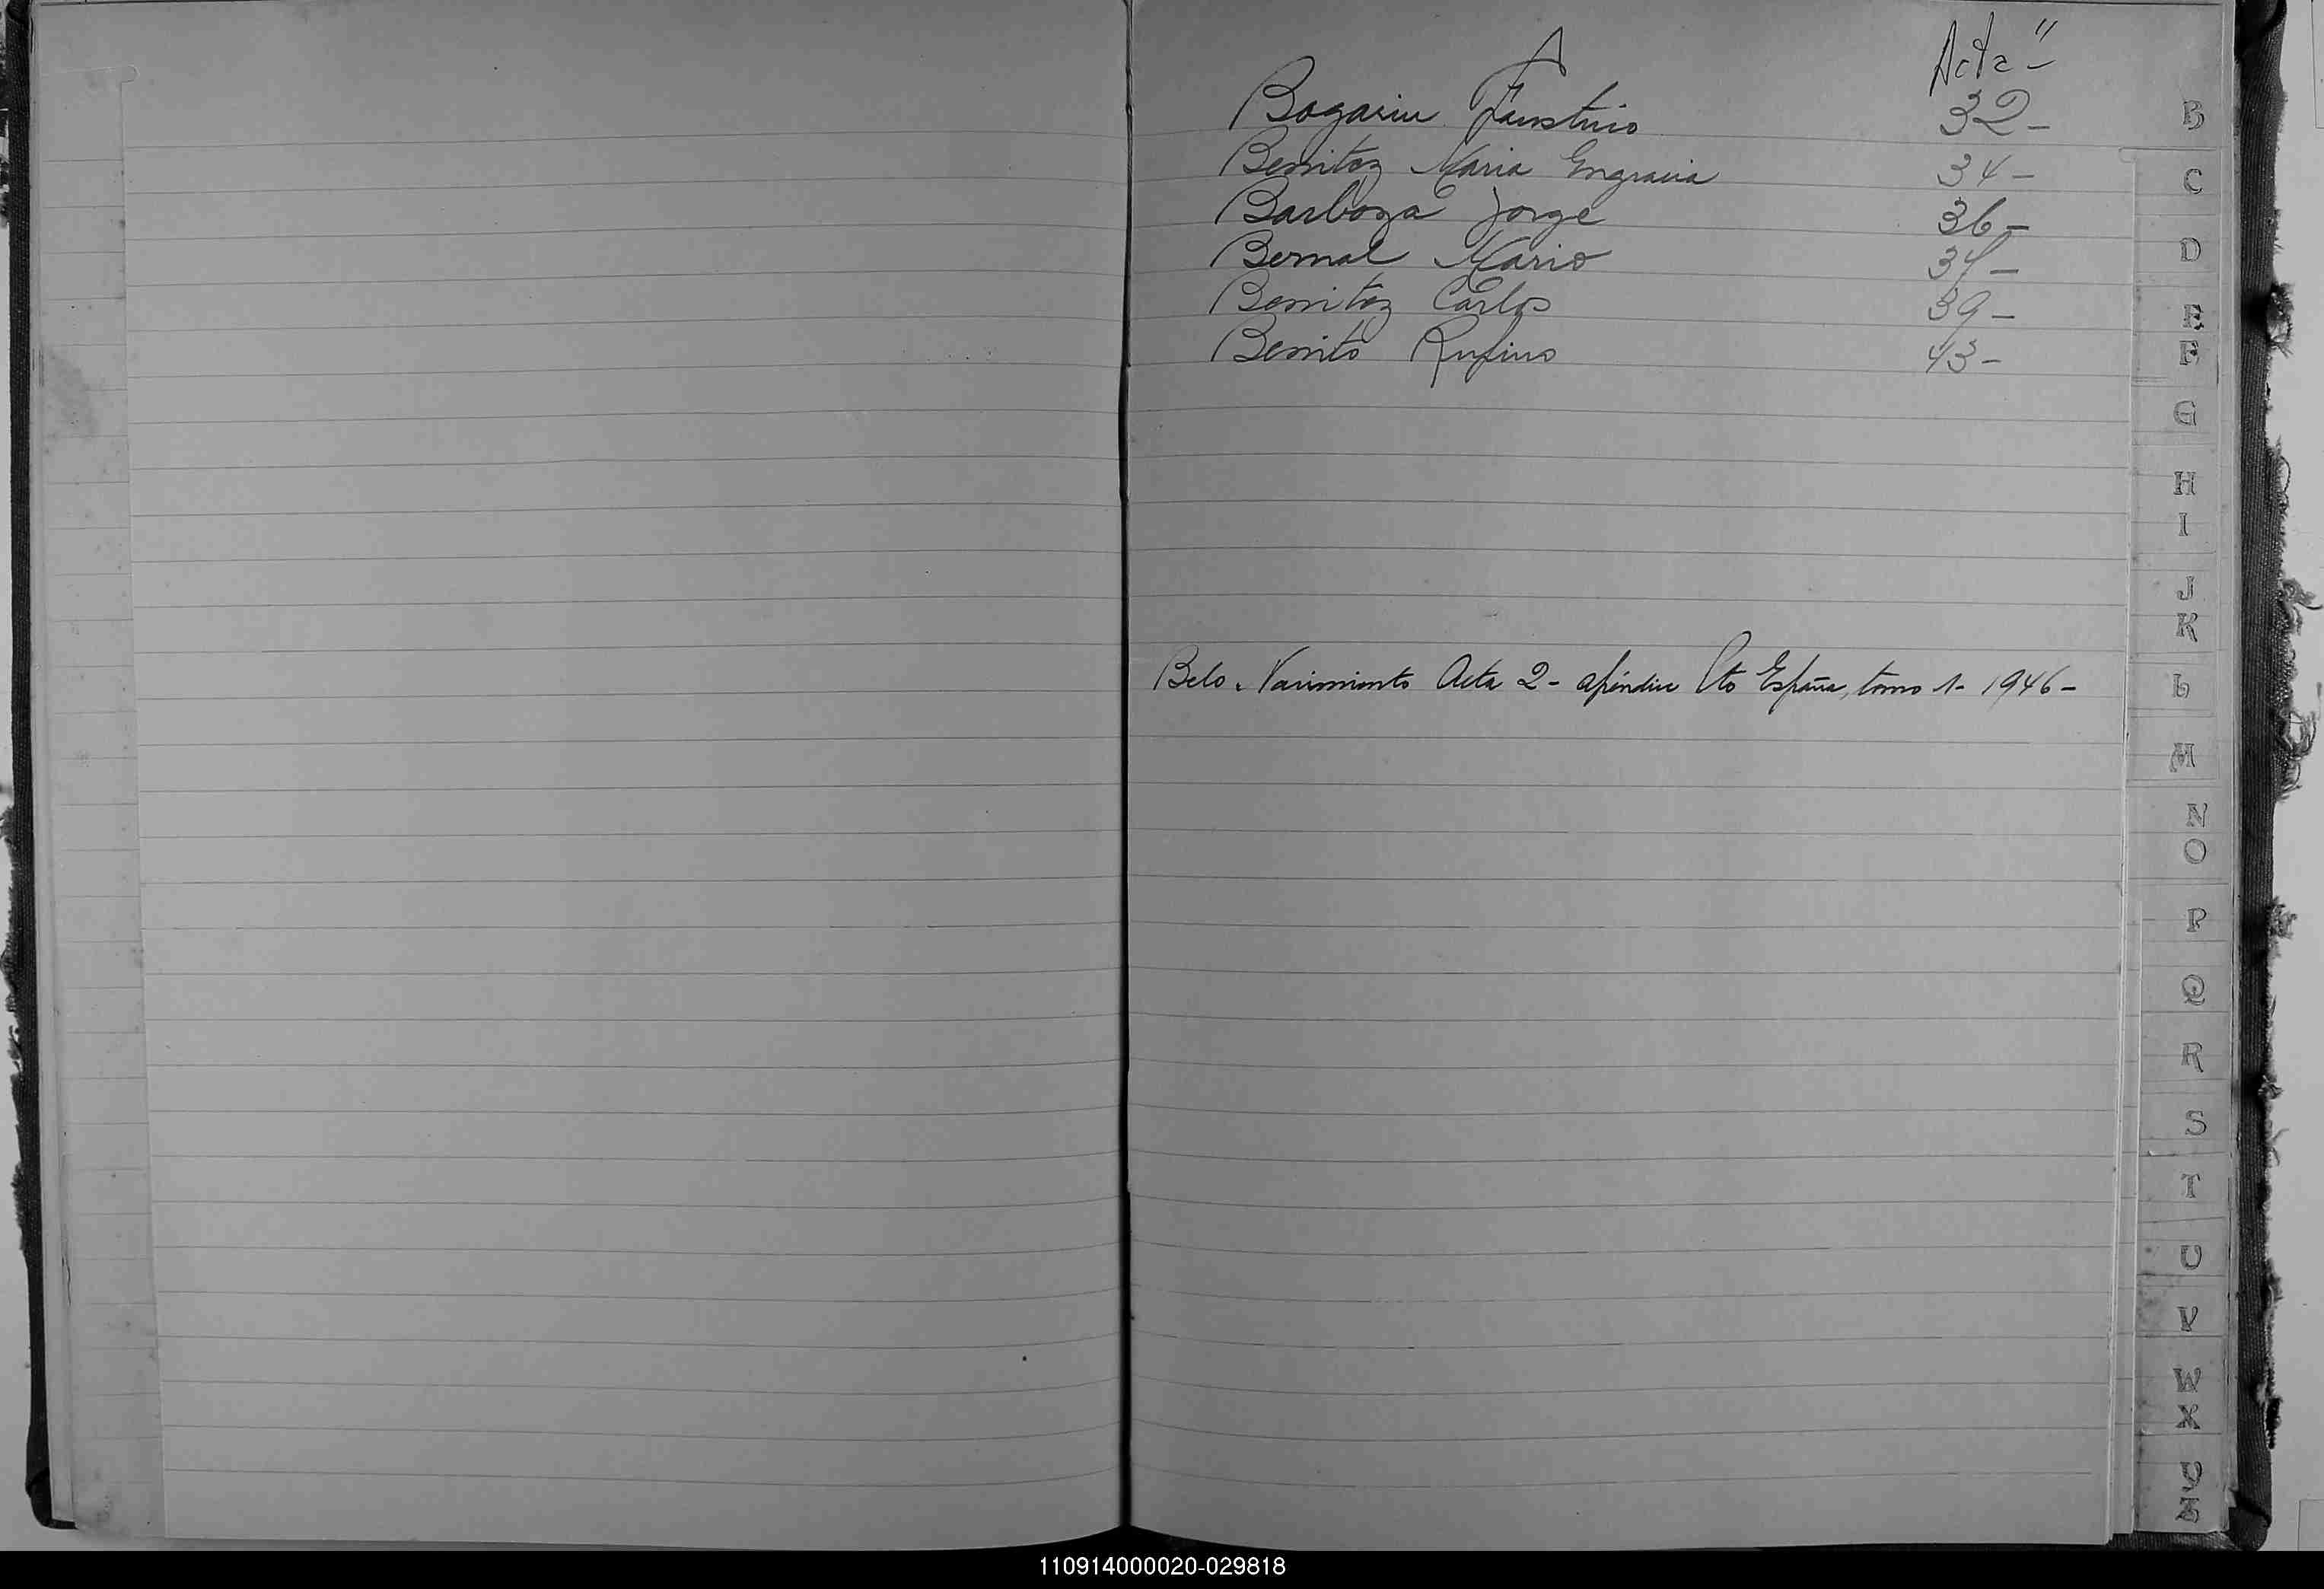 Acta"
Bogarin Faustino 32-
Benitez Maria Engracia 34-
Barboza Jorge 36-
Bernal Mario 37-
Benitez Carlos 39-
Benito Rufino 43-
Belo. Nacimiento Acta 2- apéndice Pto España, tomo 1- 1946-
B
C
D
E
F
G
H
I
J
K
L
M
N
O
P
Q
R
S
T
U
V
W
X
Y
Z
110914000020-029818